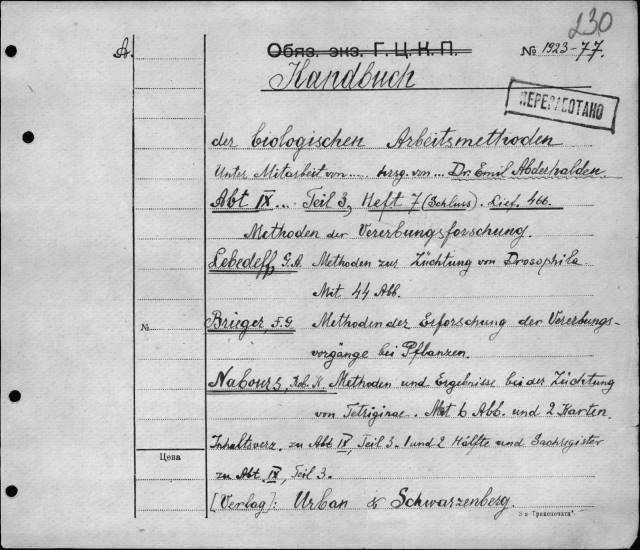 230
А. Обяз. экз. Г. Ц. К. П. № 1923-77.
Handbuch
ПЕРЕРАБОТАНО
der biologischen Arbeitsmethoden
Unter Mitarbeit von..... hrsg. von... Dr. Emil Abderhalden.
Abt IX... Teil 3, Heft 7 (Schluss). Lief. 466.
Methoden der Vererbungsforschung.
Lebedeff, G.A. Methoden zur Züchtung von Drosophila
Mit 44 Abb.
№ Brieger, F.G. Methoden der Erforschung der Vererbungs-
vorgänge bei Pflanzen.
Nabours, Rob. K. Methoden und Ergebnisse bei der Züchtung
von Tetriginae. Mit 6 Abb. und 2 Karten.
Inhaltsverz. zu Abt IX, Teil 3. 1 und 2 Hälfte und Sachregister
Цена
zu Abt. IX, Teil 3.
[Verlag]: Urban & Schwarzenberg.
З-я "Транспечати"